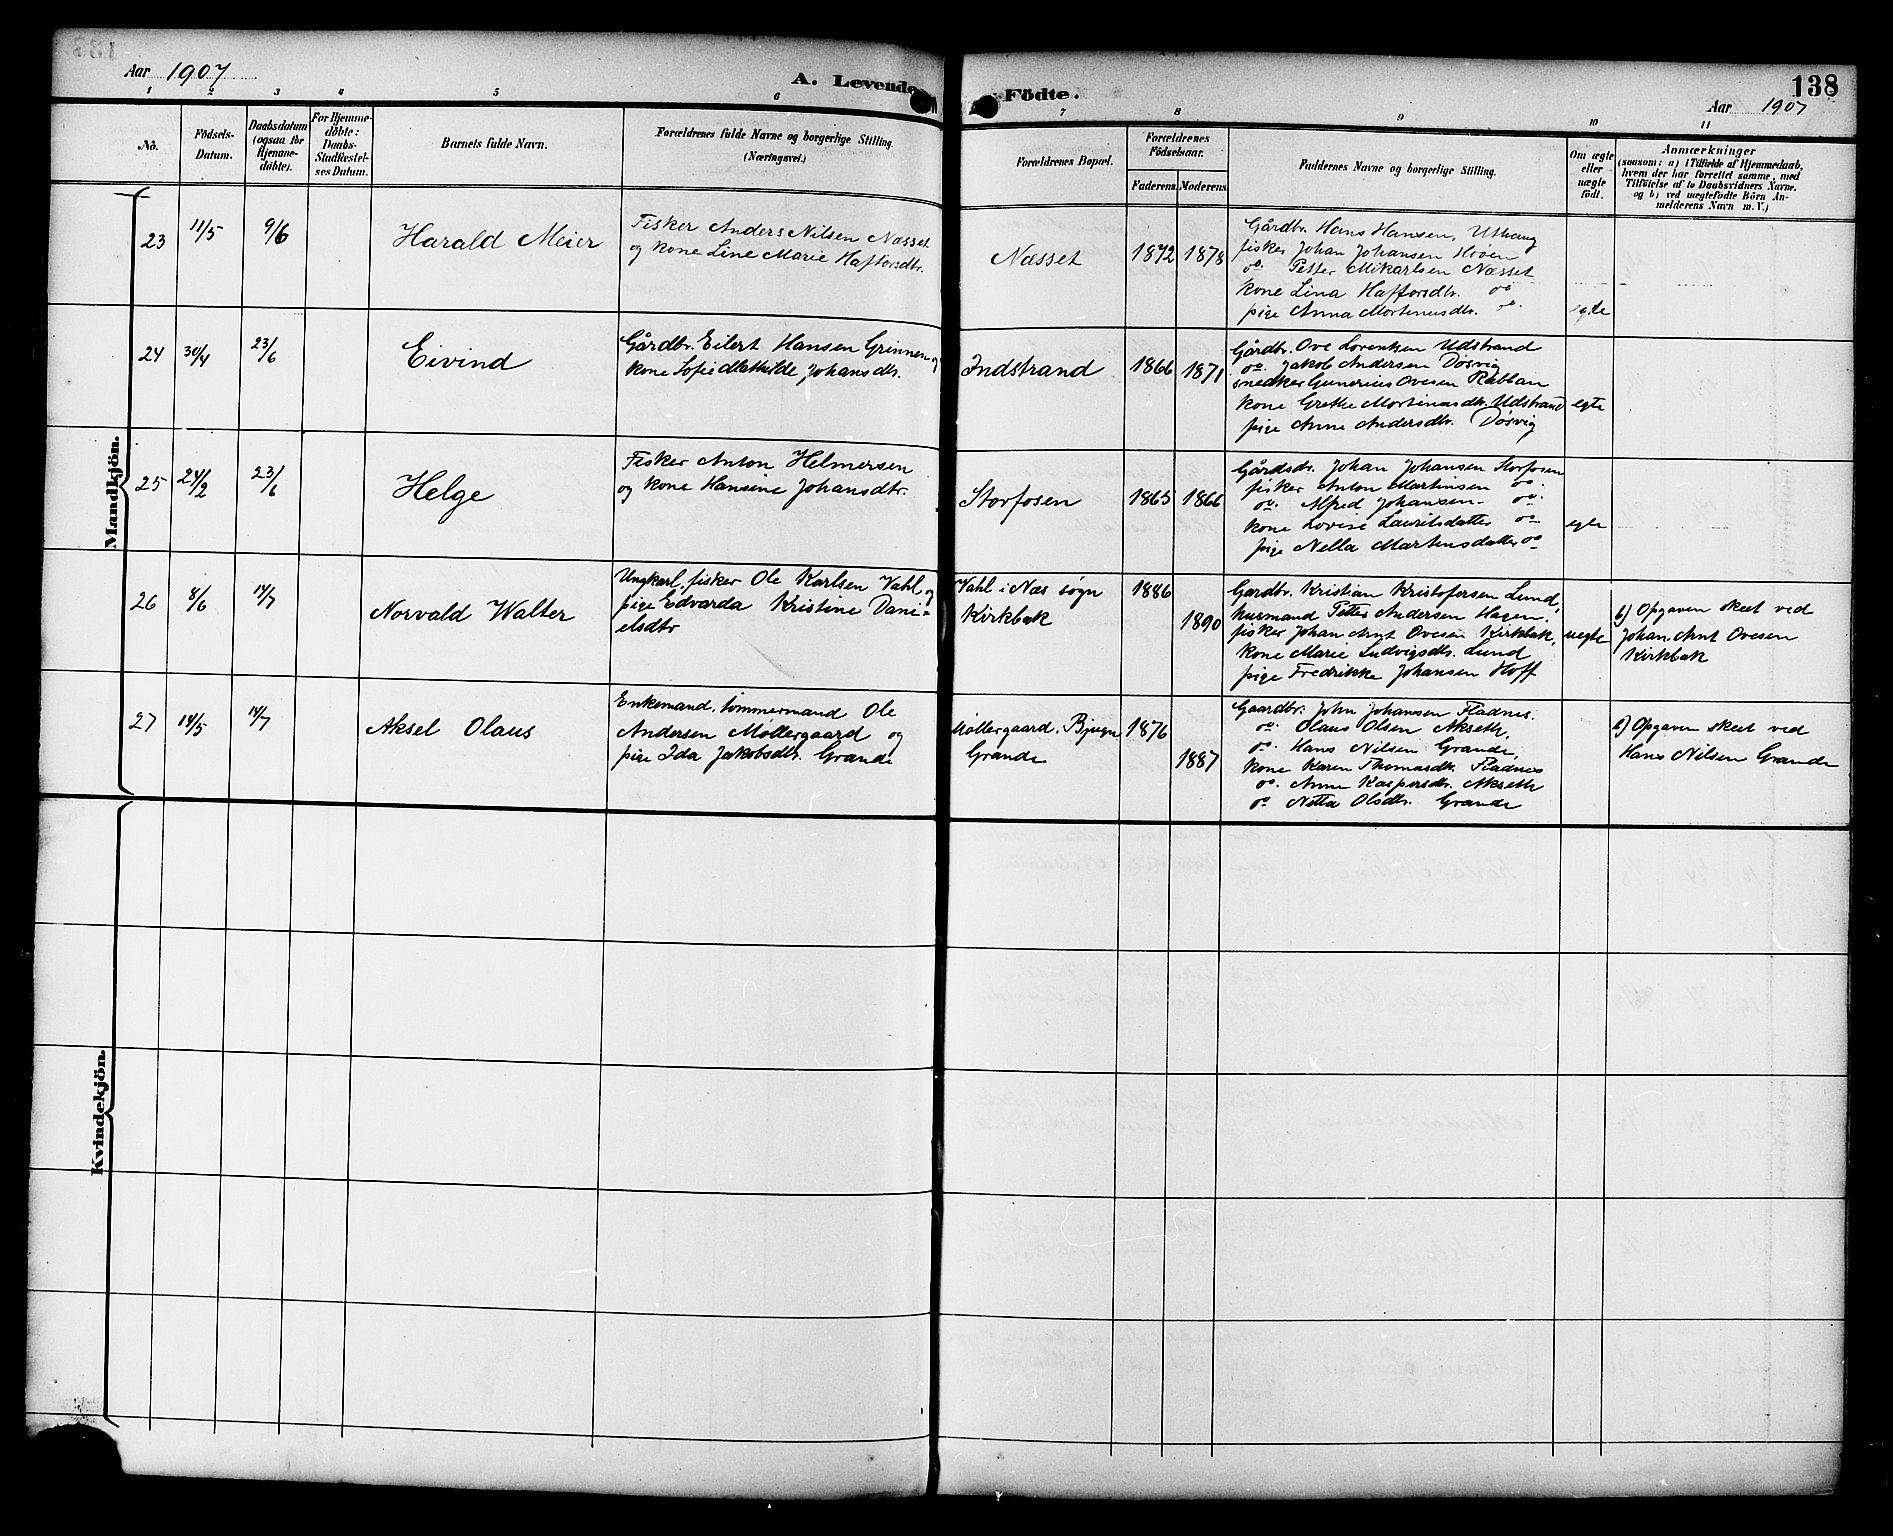 Aar 1907
A. Levende Födte.
138
Aar 1907
1 2 3 4 5 6 7 8 9 10 11
No.
Födsels-Datum.
Daabsdatum (ogsaa for Hjemme-døbte).
For Hjemme-døbte: Daabs-Stadfæstel-ses Datum.
Barnets fulde Navn.
Forældrenes fulde Navne og borgerlige Stilling.
(Næringsvei.)
Forældrenes Bopæl.
Forældrenes Födselsaar.
Faderens. Moderens.
Faddernes Navne og borgerlige Stilling.
Om ægte eller uægte født.
Anmærkninger
(saasom: a) i Tilfælde af Hjemmedaab,
hvem der har forrettet samme, med
Tilföielse af to Daabsvidners Navne.
og b) ved uægtefödte Börn An-
melderens Navn m. V.)
Mandkjön.
23 11/5 9/6 Harald Meier
Fisker Anders Nilsen Næsset
og kone Line Marie Haftorsdtr.
Næsset 1872 1878
Gårdbr. Hans Hansen, Uthaug
fisker Johan Johansen Hoøen
do. Petter Mikarlsen Næsset
kone Lina Haftorsdtr. do
pige Anna Mortensdtr. do.
egte
24 30/4 23/6 Eivind
Gårdbr. Eilert Hansen Grinnen og
kone Sofie Mathilde Johansdtr.
Indstrand 1866 1871
Gårdbr. Ove Lorentsen Udstrand
do. Jakob Andersen Døsvig
snedker Gunerius Ovesen Rabban
kone Grethe Mortensdtr. Udstrand
pige Anne Andersdtr. Døsvig
egte
25 24/2 23/6 Helge
Fisker Anton Helmersen
og kone Hansine Johansdtr.
Storfosen 1865 1866
Gårdsdr. Johan Johansen Storfosen
fisker Anton Martinsen do.
do. Alfred Johansen do.
kone Lovise Lauritsdatter do
pige Nella Martensdatter do
egte
26 8/6 14/7 Norvald Walter
Ungkarl, fisker Ole Karlsen Vahl og
pige Edvarda Kristine Dani-
elsdtr
Vahl i Næs sogn
Kirkbak
1886
1890
Gardbr. Kristian Kristofersen Lund,
husmand Petter Andersen Hagen,
fisker Johan Arnt Ovesen Kirkbak,
kone Marie Ludvigsdtr. Lund
pige Fredrikke Johansen Hoff
uegte
b) Opgaven skeet ved
Johan Arnt Ovesen
Kirkbak
27 14/5 14/7 Aksel Olaus
Enkemand, tømmermand Ole
Andersen Møllergaard og
pige Ida Jakobsdtr. Grande
Møllergaard, Bjugn
Grande
1876
1887
Gaardbr. John Johansen Fladnes.
do. Olaus Olsen Akseth,
do. Hans Nilsen Grande,
kone Karen Thomasdtr. Fladnes
do. Anne Kaspersdtr. Akseth
do Netta Olsdtr. Grande
b) Opgaven skeet ved
Hans Nilsen Grande
Kvindekjön.